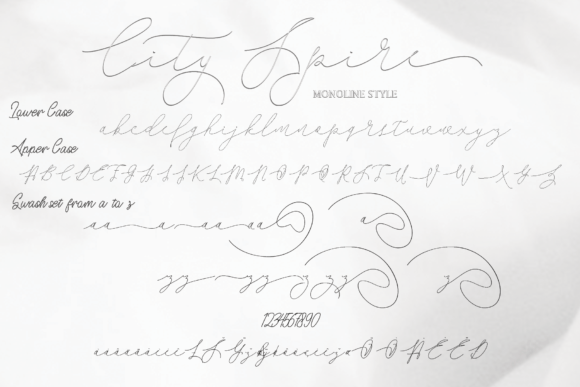 City Spire
MONOLINE STYLE
Lower Case
abcdefghijklmnopqrstuvwxyz
Apper Case
ABCDEFGHIJKLMNOPQRSTUVWXYZ
Swash set from a to z
aa a a aa
a
zz zz zz zz z
1234567890